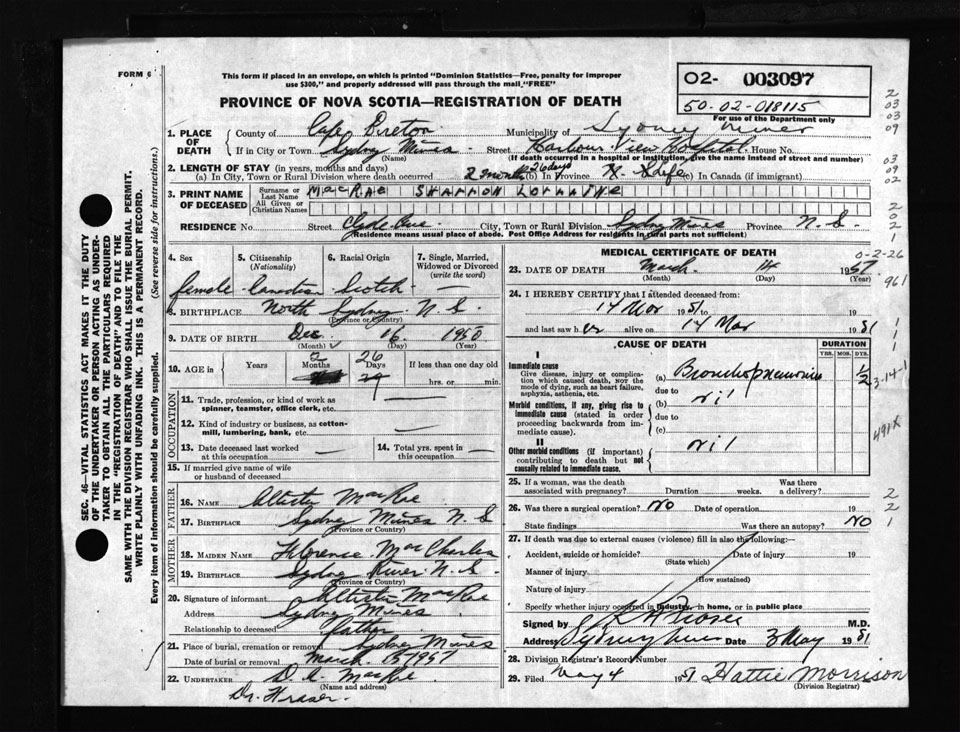 FORM 6
This form if placed in an envelope, on which is printed "Dominion Statistics—Free, penalty for improper
use $300," and properly addressed will pass through the mail "FREE"
02- 003097
50-02-018115
For use of the Department only
PROVINCE OF NOVA SCOTIA—REGISTRATION OF DEATH
SEC. 46—VITAL STATISTICS ACT MAKES IT THE DUTY
OF THE UNDERTAKER OR PERSON ACTING AS UNDER-
TAKER TO OBTAIN ALL THE PARTICULARS REQUIRED
IN THE "REGISTRATION OF DEATH" AND TO FILE THE
SAME WITH THE DIVISION REGISTRAR WHO SHALL ISSUE THE BURIAL PERMIT.
WRITE PLAINLY WITH UNFADING INK. THIS IS A PERMANENT RECORD.
Every item of information should be carefully supplied. (See reverse side for instructions.)
1. PLACE OF DEATH County of Cape Breton Municipality of Sydney Mines
If in City or Town Sydney Mines (Name) Street Harbour View Hospital House No.
(If death occurred in a hospital or institution, give the name instead of street and number)
2. LENGTH OF STAY (in years, months and days)
(a) In City, Town or Rural Division where death occurred 2 months 26 days (b) In Province Life (c) In Canada (if immigrant)
3. PRINT NAME OF DECEASED Surname or Last Name MacRae Sharron Lorraine
All Given or Christian Names
RESIDENCE No. Street Clyde Ave City, Town or Rural Division Sydney Mines Province N. S.
(Residence means usual place of abode. Post Office Address for residents in rural parts not sufficient)
4. Sex female
5. Citizenship (Nationality) Canadian
6. Racial Origin Scotch
7. Single, Married, Widowed or Divorced (write the word) —
8. BIRTHPLACE North Sydney N. S.
(Province or Country)
9. DATE OF BIRTH Dec 6 1950
(Month) (Day) (Year)
10. AGE in Years Months 2 Days 26 29 If less than one day old
hrs. or min.
OCCUPATION
11. Trade, profession, or kind of work as
spinner, teamster, office clerk, etc. —
12. Kind of industry or business, as cotton-
mill, lumbering, bank, etc. —
13. Date deceased last worked at this occupation —
14. Total yrs. spent in this occupation —
15. If married give name of wife
or husband of deceased
FATHER
16. NAME Alister MacRae
17. BIRTHPLACE Sydney Mines N. S
(Province or Country)
MOTHER
18. MAIDEN NAME Florence MacCharles
19. BIRTHPLACE Sydney River N. S.
(Province or Country)
20. Signature of informant Alister MacRae
Address Sydney Mines
Relationship to deceased father
21. Place of burial, cremation or removal Sydney Mines
Date of burial or removal March 15 1951
22. UNDERTAKER D. A. MacRae
(Name and address)
Dr. Fraser.
MEDICAL CERTIFICATE OF DEATH
23. DATE OF DEATH March 14 1951
(Month) (Day) (Year)
24. I HEREBY CERTIFY that I attended deceased from:
14 Mar 1951 to 19
and last saw her alive on 14 Mar 1951
CAUSE OF DEATH DURATION
YRS. MOS. DYS.
I
Immediate cause
Give disease, injury or complica-
tion which caused death, not the
mode of dying, such as heart failure,
asphyxia, asthenia, etc.
(a) Bronchopneumonia 1/2
due to
Morbid conditions, if any, giving rise to
immediate cause (stated in order
proceeding backwards from im-
mediate cause).
(b) nil
due to
(c)
II
Other morbid conditions (if important)
contributing to death but not
causally related to immediate cause.
nil
25. If a woman, was the death
associated with pregnancy? Duration weeks. Was there a delivery?
26. Was there a surgical operation? NO Date of operation 19
State findings Was there an autopsy? NO
27. If death was due to external causes (violence) fill in also the following:—
Accident, suicide or homicide? Date of injury 19
(State which)
Manner of injury
(How sustained)
Nature of injury
Specify whether injury occurred in industry, in home, or in public place
Signed by M.D.
Address Sydney Mines Date 3 May 1951
28. Division Registrar's Record Number
29. Filed May 4 1951 Hattie Morrison
(Division Registrar)
2
03
03
09
03
09
02
2
0
2
1
0-2-26
961
1
1
1
3-14-1
491X
2
2
1